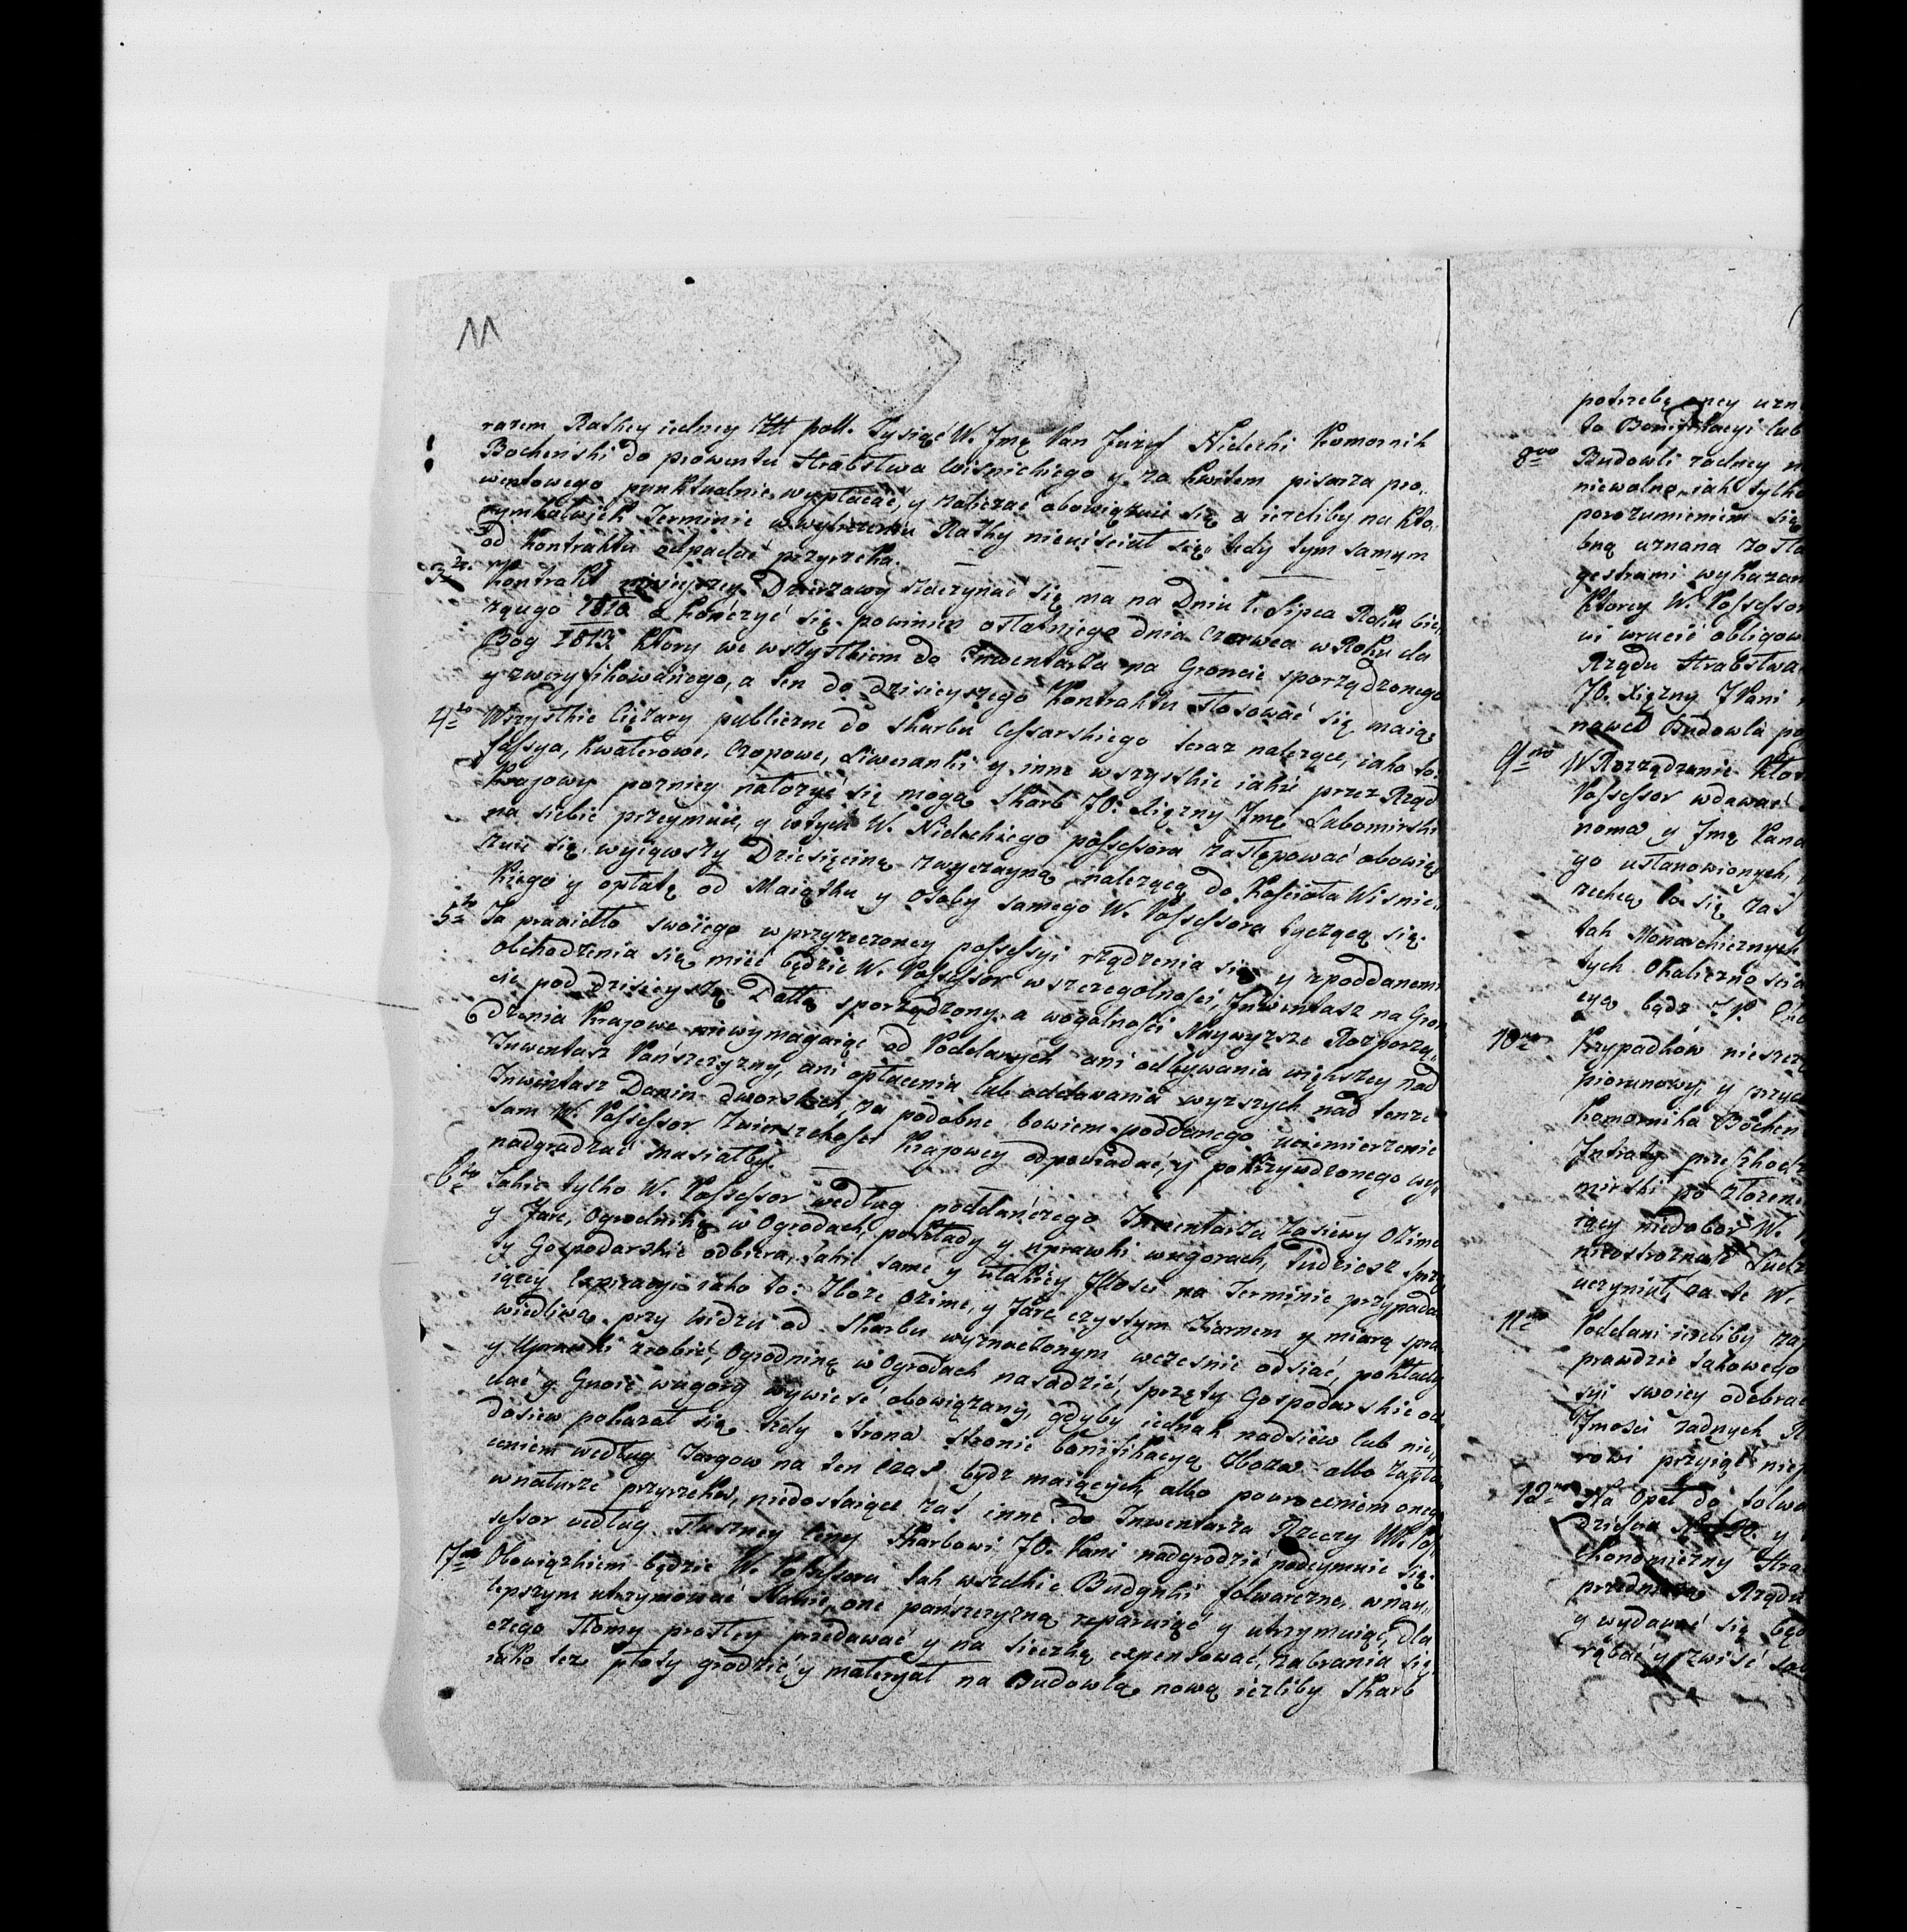 11
razem Ratkey iedney Ztt poll. Tysiąc W. Jmę Pan Józef Nidecki Komornik
Bocheński do prowentu Hrabstwa Wisnickiego y za kwitem pisarza pro„
wentowego punktualnie wypłacać, y zaliczać obowiązuie się a ieżeliby na któ„
rymkolwiek Terminie w wyliczeniu Ratky nieuiścił się, tedy tym samym
od Kontraktu odpadać przyrzeka.
3tio Kontrakt ninieyszey Dzierzawy zaczynać się ma na Dniu 1. Lipca Roku bie„
zącego 1810 a kończyć się powinien ostatniego dnia Czerwca w Roku da
Bog 1813 ktory we wszystkiem do Inwentarza na Groncie sporządzonego
y zweryfikowanego, a ten do dzisieyszego Kontraktu stosować się maią.
4to Wszystkie Ciężary publiczne do Skarbu Cesarskiego teraz należące, iako to
fassya, kwaterowe, Czopowe, Liweranki y inne wszystkie iakie przez Rząd
Krajowy pozniey nałożyć się mogą Skarb JO. Xiężny Jmę Lubomirski
na siebie przeymuie, y w tych W. Nideckiego possessora zastępować obowią„
zuie się, wyiąwszy Dziesięcinę zwyczayną należącą do Kościoła Wisnic„
kiego y opłatę od Maiątku y Osoby samego W. Possessora tyczącą się.
5to Za prawidło swoiego w przyrzeczoney possessyi rządzenia się y z poddanemi
obchodzenia się mieć będzie W. Possessor w szczegolności, Inwentarz na Gron
cie pod dzisieyszą Dattą sporządzony, a wogolności Naywyższe Rozporzą„
dzenia Krajowe niewymagaiąc od Poddanych ani odbywania większey nad
Inwentarz Pańszczyzny, ani opłacenia lub oddawania wyższych nad tenże
Inwentarz Danin dworskich, za podobne bowiem poddanego uciemierzenie
sam W. Possessor Zwierzchności Krajowey odpowiadać, y pokrzywdzonego wy„
nadgradzać musiałby.
6to Jakie tylko W. Possessor według poddańczego Inwentarza Zasiewy Ozime
y Jare, Ogrodninę w Ogrodach, pokłady y uprawki w ugorach, tudziesz sprzę
ty Gospodarskie odbiera, takie same y w takiey Ilości na Terminie przypada
iącey Expiracyi iako to: Zboże ozime, y Jare czystym Ziarnem y miarą spra
wiedliwą przy widzu od Skarbu wyznaczonym wcześnie odsiać, pokłady
y Uprawki zrobić, Ogrodninę w Ogrodach nasadzić, sprzęty Gospodarskie od
dać y Gnoie w ugory wywieść obowiązany, gdyby iednak nadsiew lub nie„
dosiew pokazał się tedy Strona stronie bonifikacyą Zboża albo zapła
ceniem według Targow na ten Czas bydz maiących albo powroceniem onego
w naturze przyrzeka, niedostaiące zaś inne do Inwentarza Rzeczy W. Pos
sessor według słuszney Ceny Skarbowi JO. Pani nadgrodzić podeymuie się.
7mo Obowiązkiem będzie W. Possessora tak wszelkie Budynki folwarczne, w nay„
lepszym utrzymować Stanie, one pańszczyzną reparuiąc y utrzymuiąc, dla
czego Słomy prostey przedawać y na sieczkę expensować, zabrania się,
iako też płoty grodzić, y materyał na Budowlą nową ieżliby Skarb
potrzebę oney uzn
ta Bonifikacyi lub
8vo Budowli żadney n
niewolno, iak tylko
porozumieniem się
bną uznana zosta
gestrami wykazan
ktorey W. Possessor
ui wrucić obligow
Rządu Hrabstwa
JO. Xiężny JPani
nawet Budowla po
9no W Rozrządzenie
Possessor wdawać
noma, y Jmę Pana
go ustanowionych,
zechcą to się zaś
tak Monarchicznych
tych Okolicznościa
cya bądz JP.
10mo Przypadkow nieszczę
piorunowy, y przyc
Komornika Bochen
Intraty przeszkodz
mirski po złożeni
iący niedobor W.
nieostrożność Ludz
uczynił, za te W.
11mo Poddani ieżeliby za
prawdzie takowego
syi swoiey odebrać
Jmości żadnych
rowi przyiąć nie
12mo Na Opał do folwa
dzieścia
ekonomiczny Hra
Rządu
y wydawać się będ
rąbać y zwieść